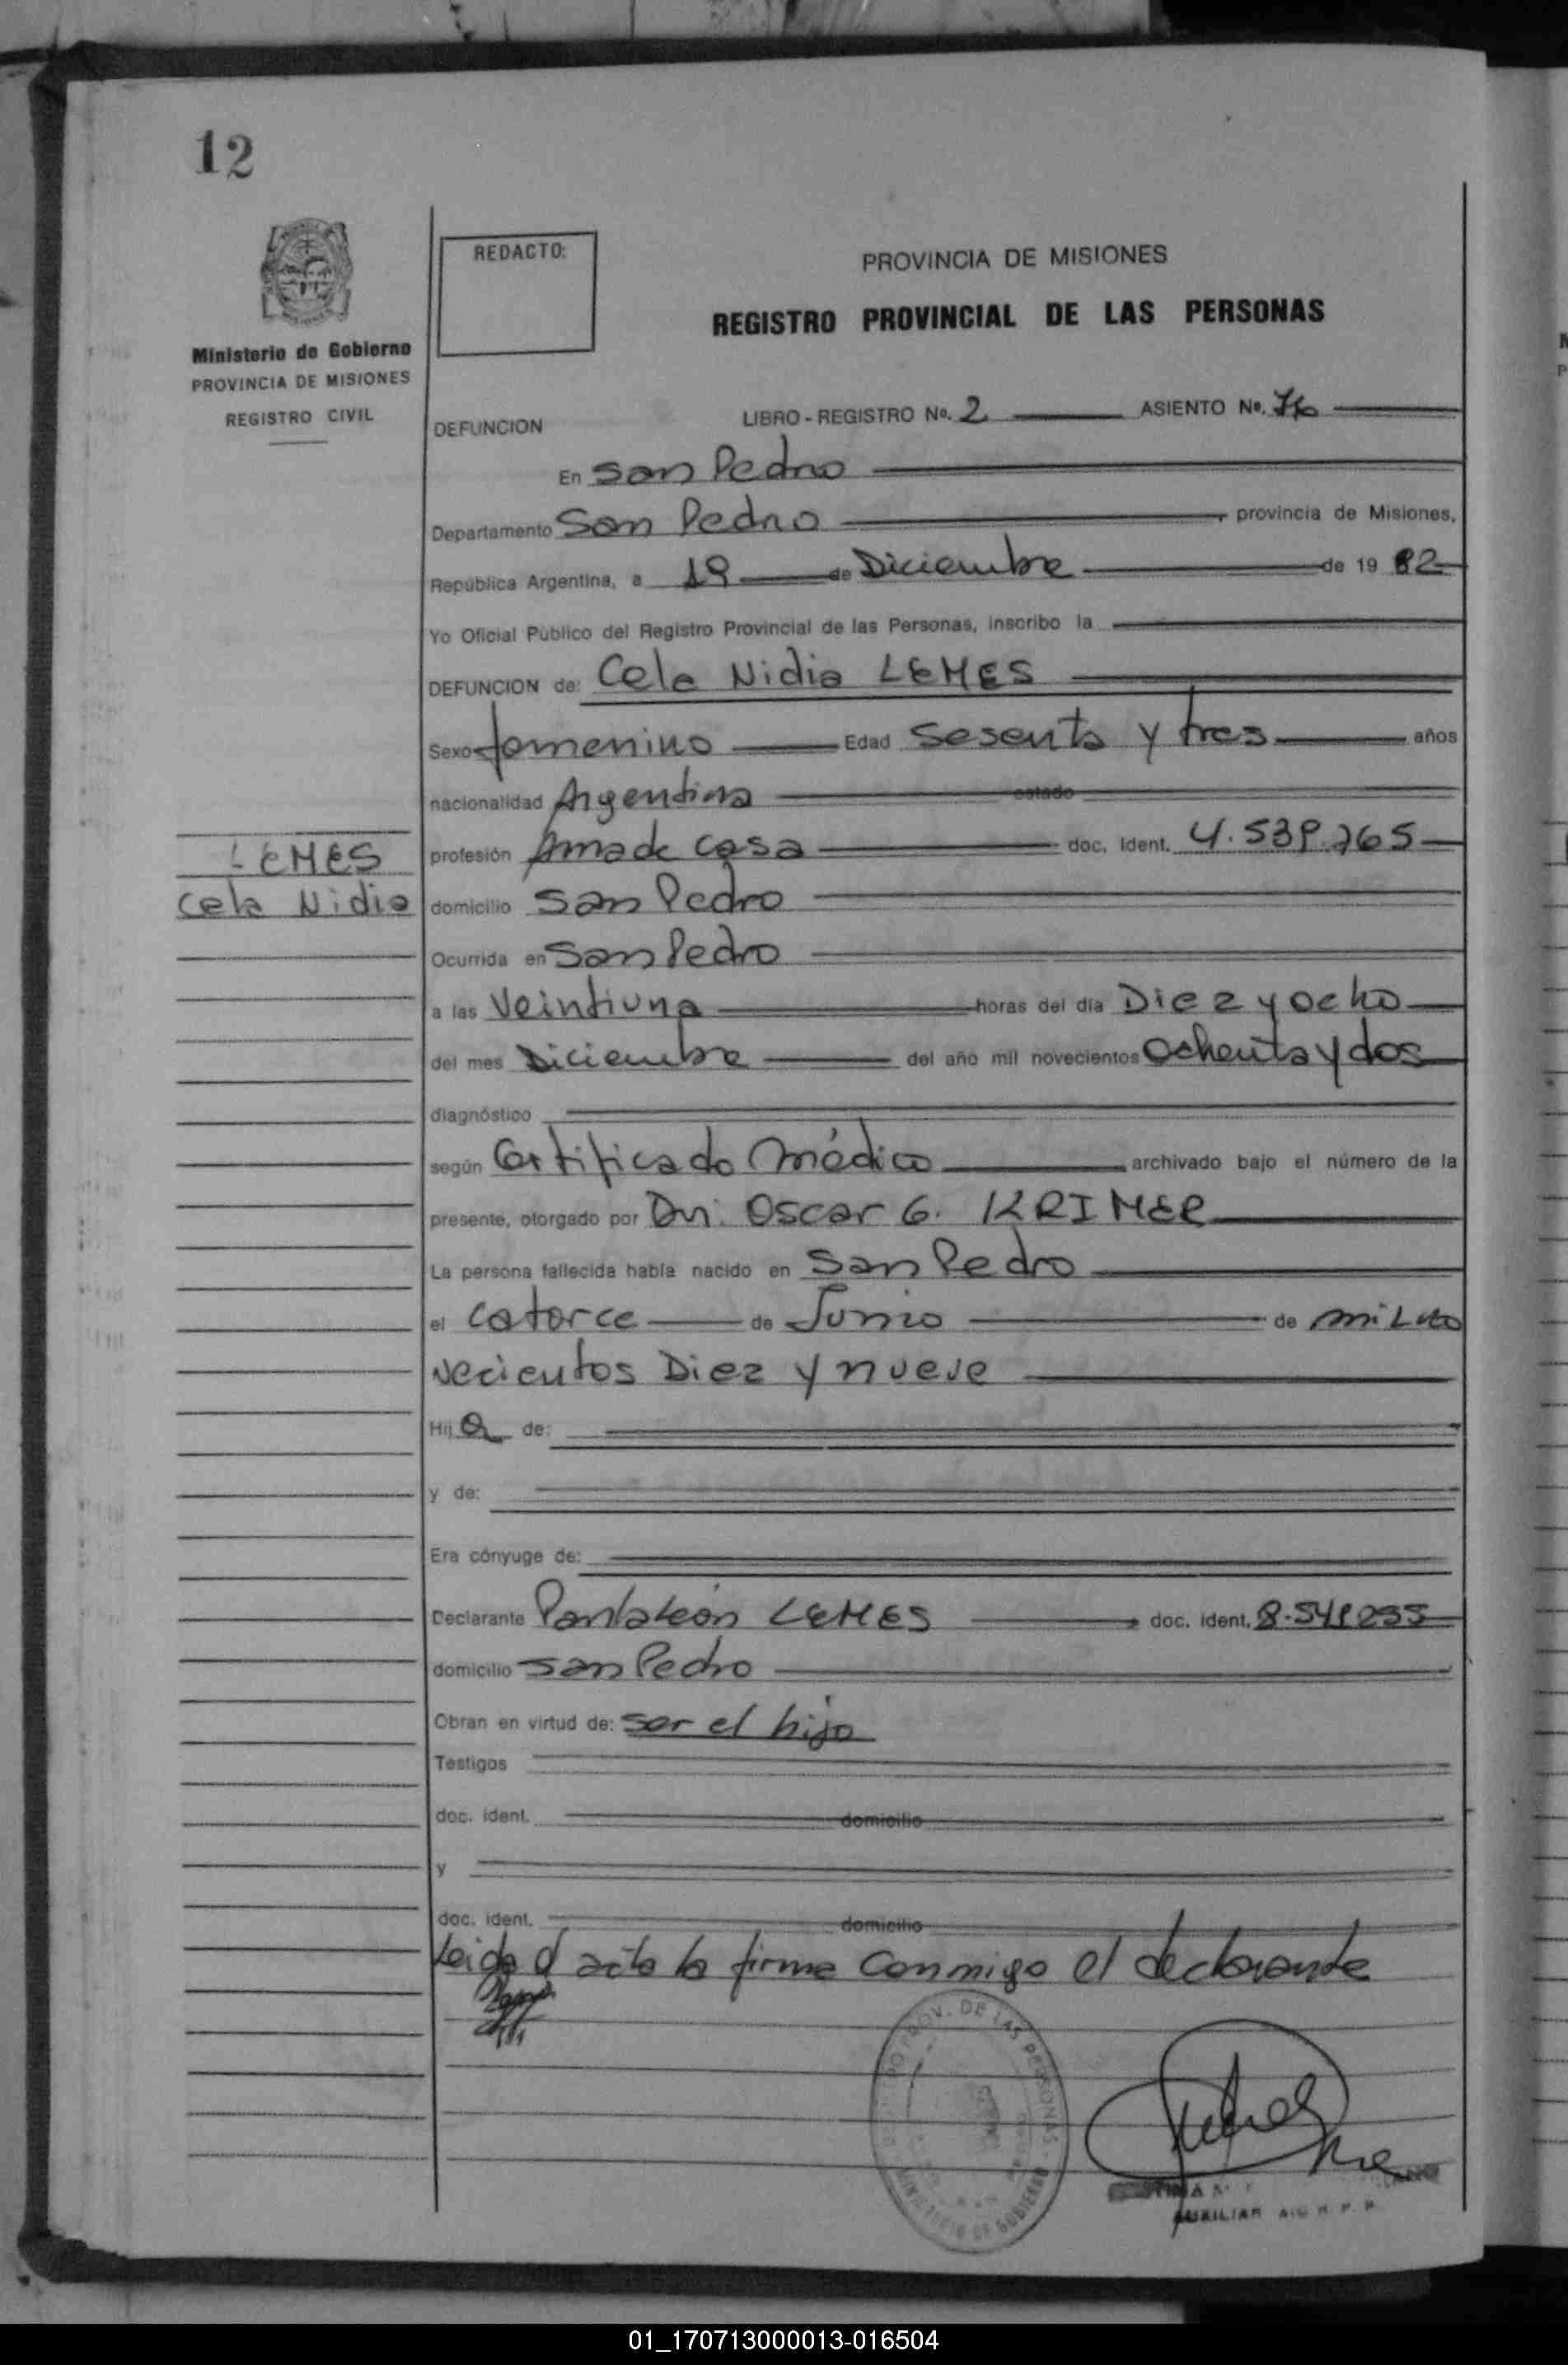 12
REDACTO:
PROVINCIA DE MISIONES
REGISTRO PROVINCIAL DE LAS PERSONAS
Ministerio de Gobierno
PROVINCIA DE MISIONES
REGISTRO CIVIL
DEFUNCION LIBRO - REGISTRO Nº. 2 ASIENTO Nº. 76
En San Pedro
Departamento San Pedro, provincia de Misiones,
República Argentina, a 19 de Diciembre de 19 82
Yo Oficial Público del Registro Provincial de las Personas, inscribo la
DEFUNCION de: Cela Nidia LEMES
Sexo femenino Edad Sesenta y tres años
nacionalidad Argentina estado
profesión Ama de casa doc. Ident. 4.539.765
LEMES
Cela Nidia
domicilio San Pedro
Ocurrida en San Pedro
a las Veintiuna horas del día Diez y ocho
del mes Diciembre del año mil novecientos Ochenta y dos
diagnóstico
según Certificado Médico archivado bajo el número de la
presente, otorgado por Dr. Oscar G. KRIMER
La persona fallecida había nacido en San Pedro
el catorce de Junio de mil no
vecientos Diez y nueve
Hij a de:
y de:
Era cónyuge de:
Declarante Pantaleón LEMES doc. ident. 8.541.255
domicilio San Pedro
Obran en virtud de: ser el hijo
Testigos
doc. ident. domicilio
y
doc. ident. domicilio
Leida el acta la firma conmigo el declarante
PROV. DE LAS PERSONAS
MINISTERIO DE GOBIERNO
AUXILIAR
01_170713000013-016504